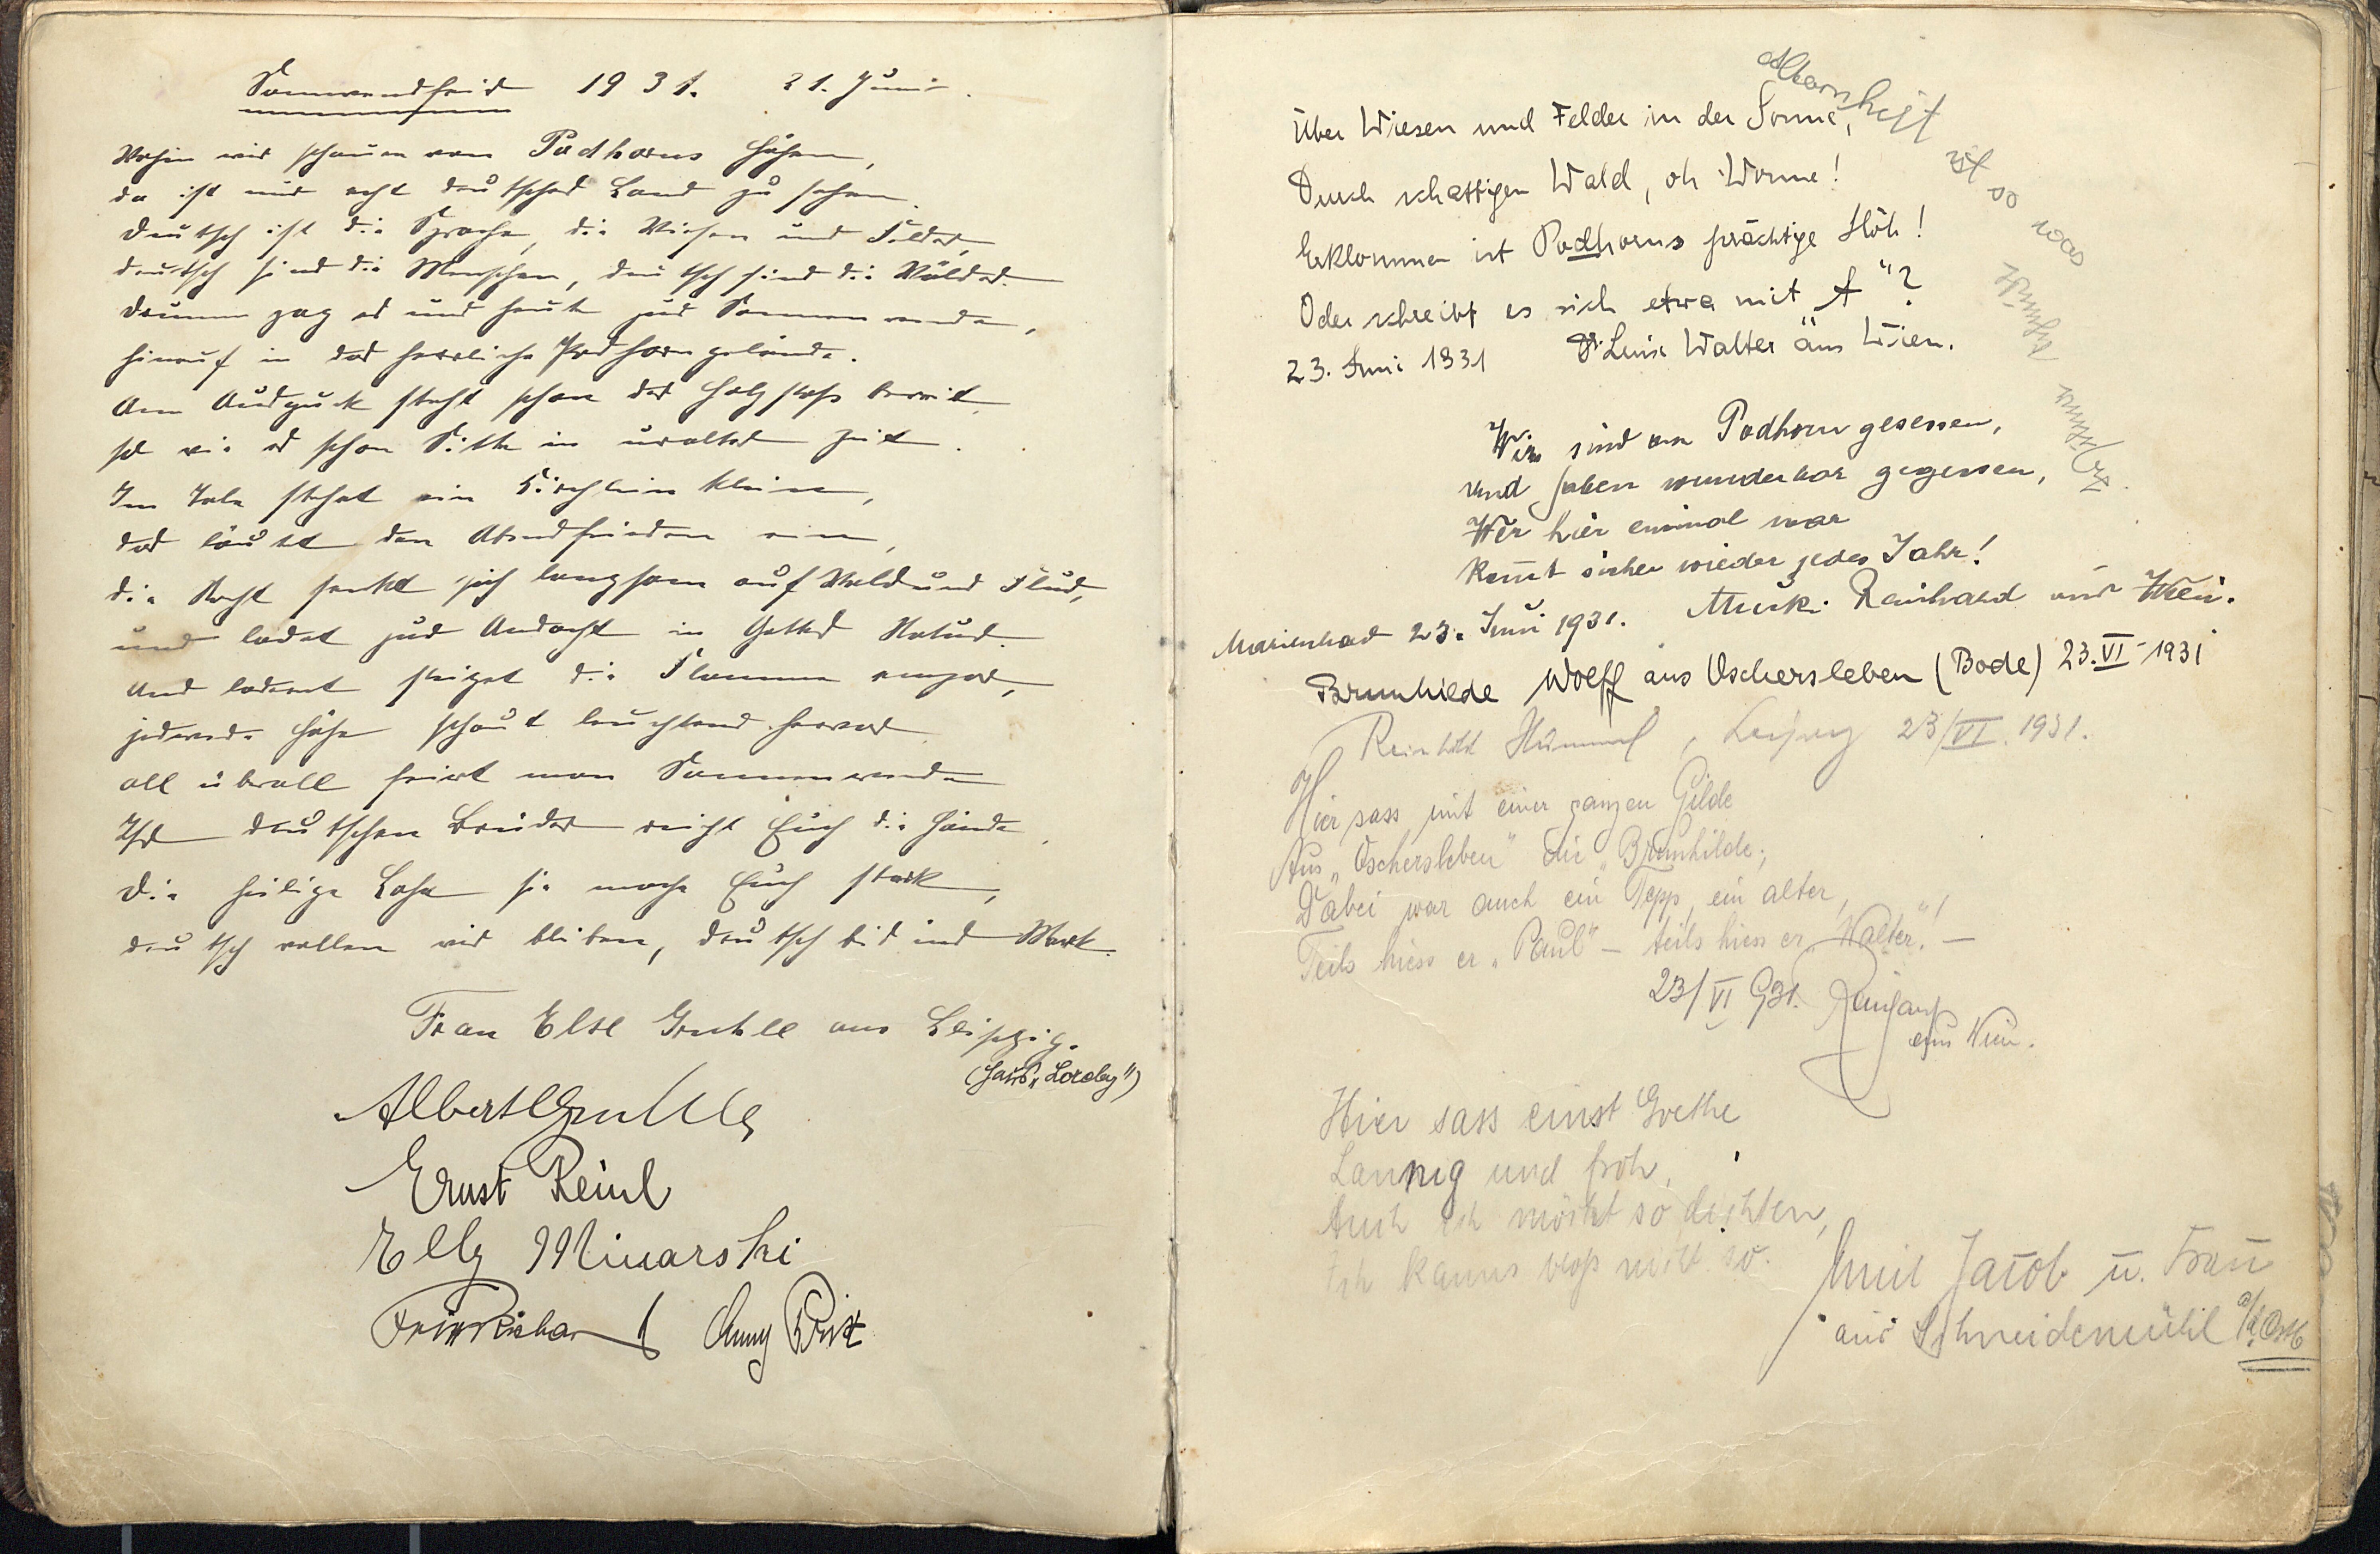 Sonnwendfeier 1931. 21. Juni.
Wohin wir schauen von Podhorns Höhen,
da ist nur echt deutsches Land zu sehen.
Deutsch ist die Sprache, die Wiesen und Felder,
deutsch sind die Menschen, deutsch sind die Wälder.
Drum zog es uns heute zur Sonnenwende,
hinauf in das herrliche Podhorngelände.
Am Ausguck steht schon der Holzstoss bereit,
so wie es schon Sitte in uralter Zeit.
Im Tale stehet ein Kirchlein klein,
das läutet den Abendfrieden ein,
die Nacht senket sich langsam auf Wald und Flur,
und ladet zur Andacht in Gottes Natur.
Und lodernd steiget die Flamme empor,
jedwede Höhe schaut leuchtend hervor
all überall feiert man Sonnenwende
Ihr deutschen Brüder reicht Euch die Hände.
Die heilige Lohe sie mache Euch stark,
deutsch wollen wir bleiben, deutsch bis ins Mark.
Frau Else Gruhle aus Leipzig.
(Haus „Loreley")
Albert Gruhle
Ernst Reinl
Elly Minarski
Anny
Über Wiesen und Felder in der Sonne,
Durch schattigen Wald, oh Wonne!
Erklommen ist Podhorns prächtige Höh!
Oder schreibt es sich etwa mit „t"?
23. Juni 1931 Dr. Luise Walter aus Wien.
Albernheit ist so was
Wir sind am Podhorn gesessen,
und haben wunderbar gegessen,
Wer hier einmal war
kommt sicher wieder jedes Jahr!
Marienbad 23. Juni 1931. Mucki Reinhard aus Wien.
Brunhilde Wolff aus Oschersleben (Bode) 23. VI 1931
Reinhold Hummel, Leipzig 23/VI. 1931.
Hier sass mit einer ganzen Gilde
Aus „Oschersleben" die „Brunhilde;
Dabei war auch ein Tepp, ein alter,
Teils hiess er „Paul" – teils hiess er „Walter"! –
23/VI 931. Reinhard
aus Wien.
Hier sass einst Goethe
Launig und froh,
Auch ich möcht so dichten,
Ich kanns blos nicht so.
Emil Jacob u. Frau
aus Schneidemühl a/d. Ostb